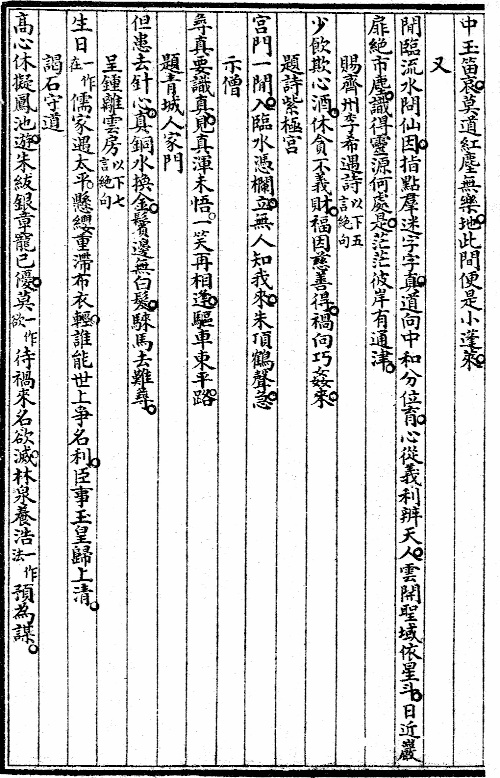 中玉笛哀莫道紅塵無樂地此間便是小蓬萊
又
閒臨流水問仙因指點羣迷字字真道向中和分位育心從義利辨天人雲開聖域依星斗日近巖
扉絕市塵識得靈源何處是茫茫彼岸有通津
賜齊州李希遇詩以下五言絕句
少飲欺心酒休貪不義財福因慈善得禍向巧姦來
題詩紫極宮
宮門一閒入臨水憑欄立無人知我來朱頂鶴聲急
示僧
尋真要識真見真渾未悟一笑再相逢驅車東平路
題青城人家門
但患去針心真銅水換金鬢邊無白髮騋馬去難尋
呈鍾離雲房以下七言絕句
生日一作在儒家遇太平懸纓重滯布衣輕誰能世上爭名利臣事玉皇歸上清
謁石守道
高心休擬鳳池遊朱紱銀章寵已優莫一作欲待禍來名欲滅林泉養浩一作法預為謀